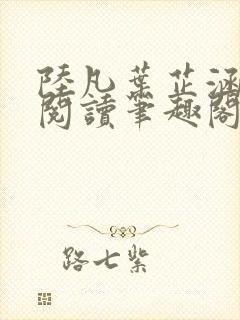 陸凡葉芷涵
閱讀筆趣閣
路七紫